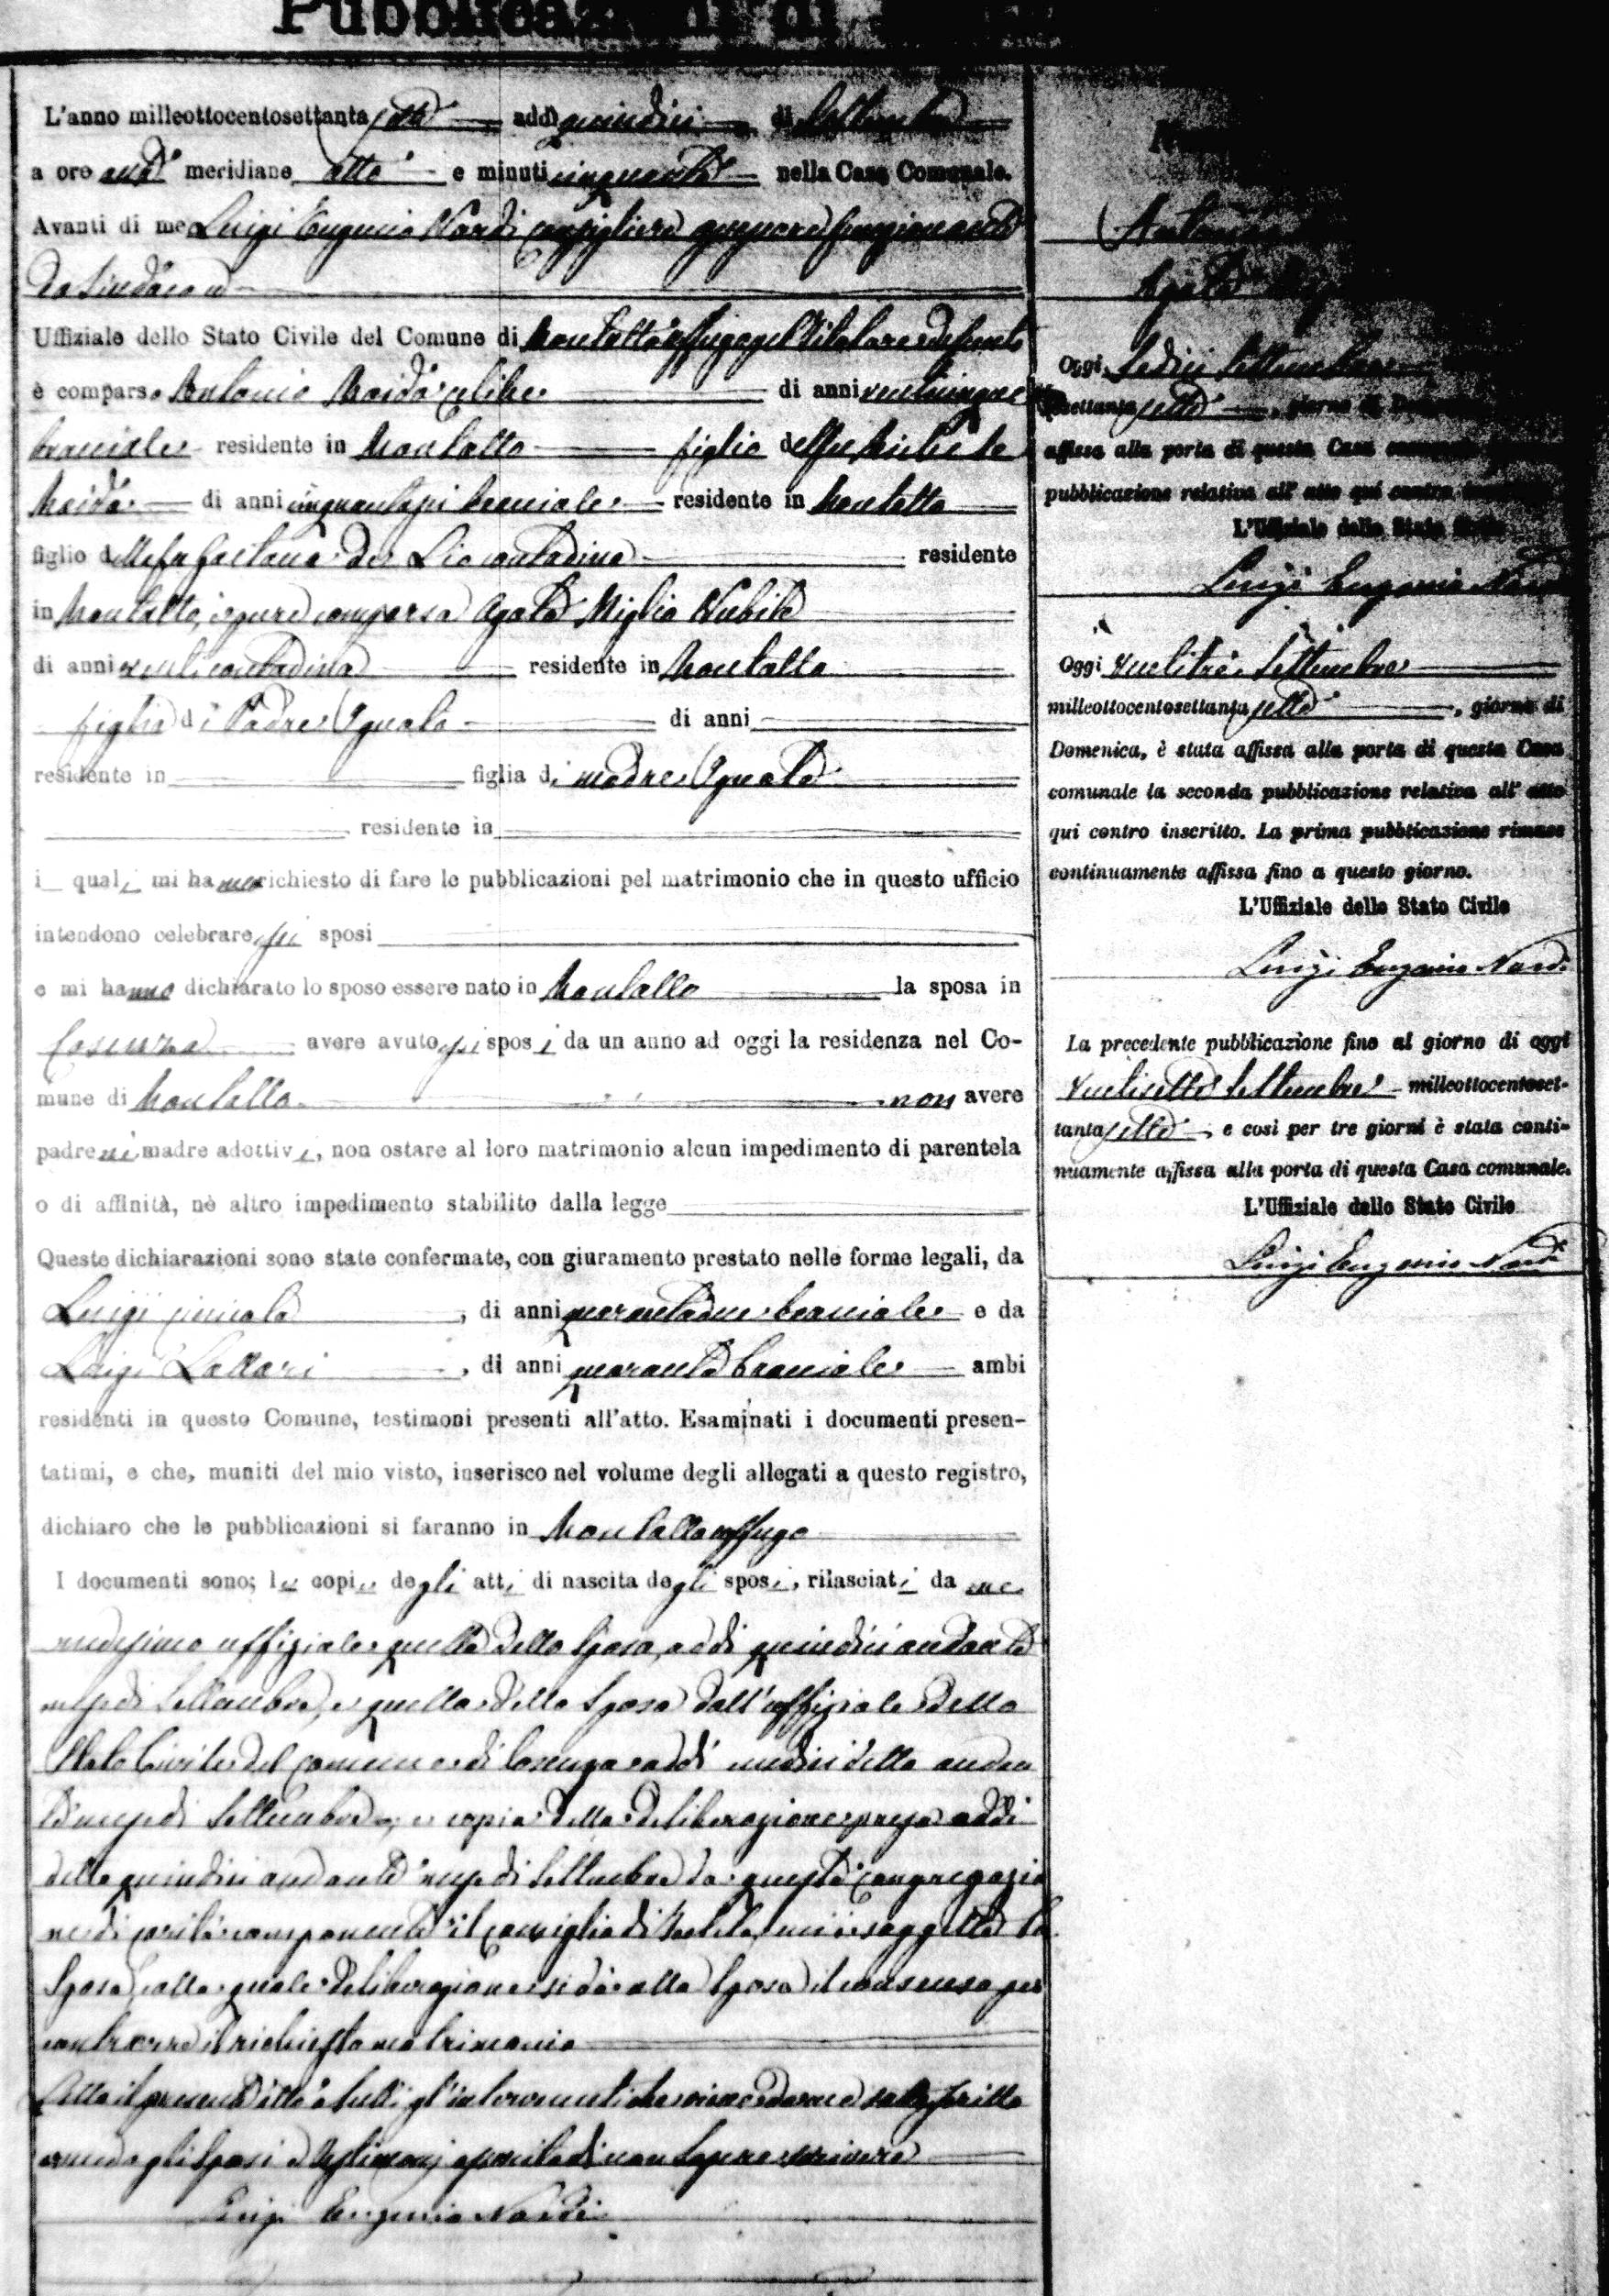 Pubblicazioni di
L'anno milleottocentosettanta sette addì quindici di Settembre
a ore anti meridiane otto e minuti cinquanta nella Casa Comunale.
Avanti di me Luigi Eugenio Nardi Consigliere funzionante
da Sindaco
Uffiziale dello Stato Civile del Comune di Montalto Uffugo
è comparso Antonio Maida celibe di anni venticinque
bracciale residente in Montalto figlio del fu Michele
Maida di anni cinquantasei bracciale residente in Montalto
figlio della fu Gaetana de Lio contadina residente
in Montalto, e pure comparsa Agata Miglio Nubile
di anni venti contadina residente in Montalto
figlia di Padre Ignoto di anni
residente in figlia di madre Ignota
residente in
i quali mi hanno richiesto di fare le pubblicazioni pel matrimonio che in questo ufficio
intendono celebrare essi sposi
e mi hanno dichiarato lo sposo essere nato in Montalto la sposa in
Cosenza avere avuto essi sposi da un anno ad oggi la residenza nel Co-
mune di Montalto non avere
padre nè madre adottivi, non ostare al loro matrimonio alcun impedimento di parentela
o di affinità, nè altro impedimento stabilito dalla legge
Queste dichiarazioni sono state confermate, con giuramento prestato nelle forme legali, da
Luigi , di anni quarantadue bracciale e da
Luigi Lattari , di anni quaranta bracciale ambi
residenti in questo Comune, testimoni presenti all'atto. Esaminati i documenti presen-
tatimi, e che, muniti del mio visto, inserisco nel volume degli allegati a questo registro,
dichiaro che le pubblicazioni si faranno in Montalto Uffugo
I documenti sono; le copie degli atti di nascita degli sposi, rilasciati da me
medesimo uffiziale quella dello Sposo, addì quindici andante
mese di Settembre, e quella della Sposa dall'uffiziale dello
Stato Civile del Comune di Cosenza addì undici detto andan
te mese di Settembre, e copia della deliberazione presa addì
detto quindici andante mese di Settembre da questa Congregazio
ne di Carità componente il Consiglio di Tutela, cui è soggetta la
Sposa, colla quale deliberazione si dà alla Sposa il consenso per
contrarre il richiesto matrimonio
Letto il presente atto a tutti gl'intervenuti che viene da me sottoscritto
Sposi e Testimoni di non sapere scrivere
Luigi Eugenio Nardi
Agata
Oggi, Sedici Settembre
settanta sette, giorno di
affissa alla porta di questa Casa
pubblicazione relativa all'atto qui contro
L'Uffiziale dello Stato Civile
Luigi Eugenio Nardi
Oggi Ventitrè Settembre
milleottocentosettanta sette, giorno di
Domenica, è stata affissa alla porta di questa Casa
comunale la seconda pubblicazione relativa all'atto
qui contro inscritto. La prima pubblicazione rimase
continuamente affissa fino a questo giorno.
L'Uffiziale dello Stato Civile
Luigi Eugenio Nardi
La precedente pubblicazione fino al giorno di oggi
Ventisette Settembre milleottocentoset-
tanta sette, e così per tre giorni è stata conti-
nuamente affissa alla porta di questa Casa comunale.
L'Uffiziale dello Stato Civile
Luigi Eugenio Nardi